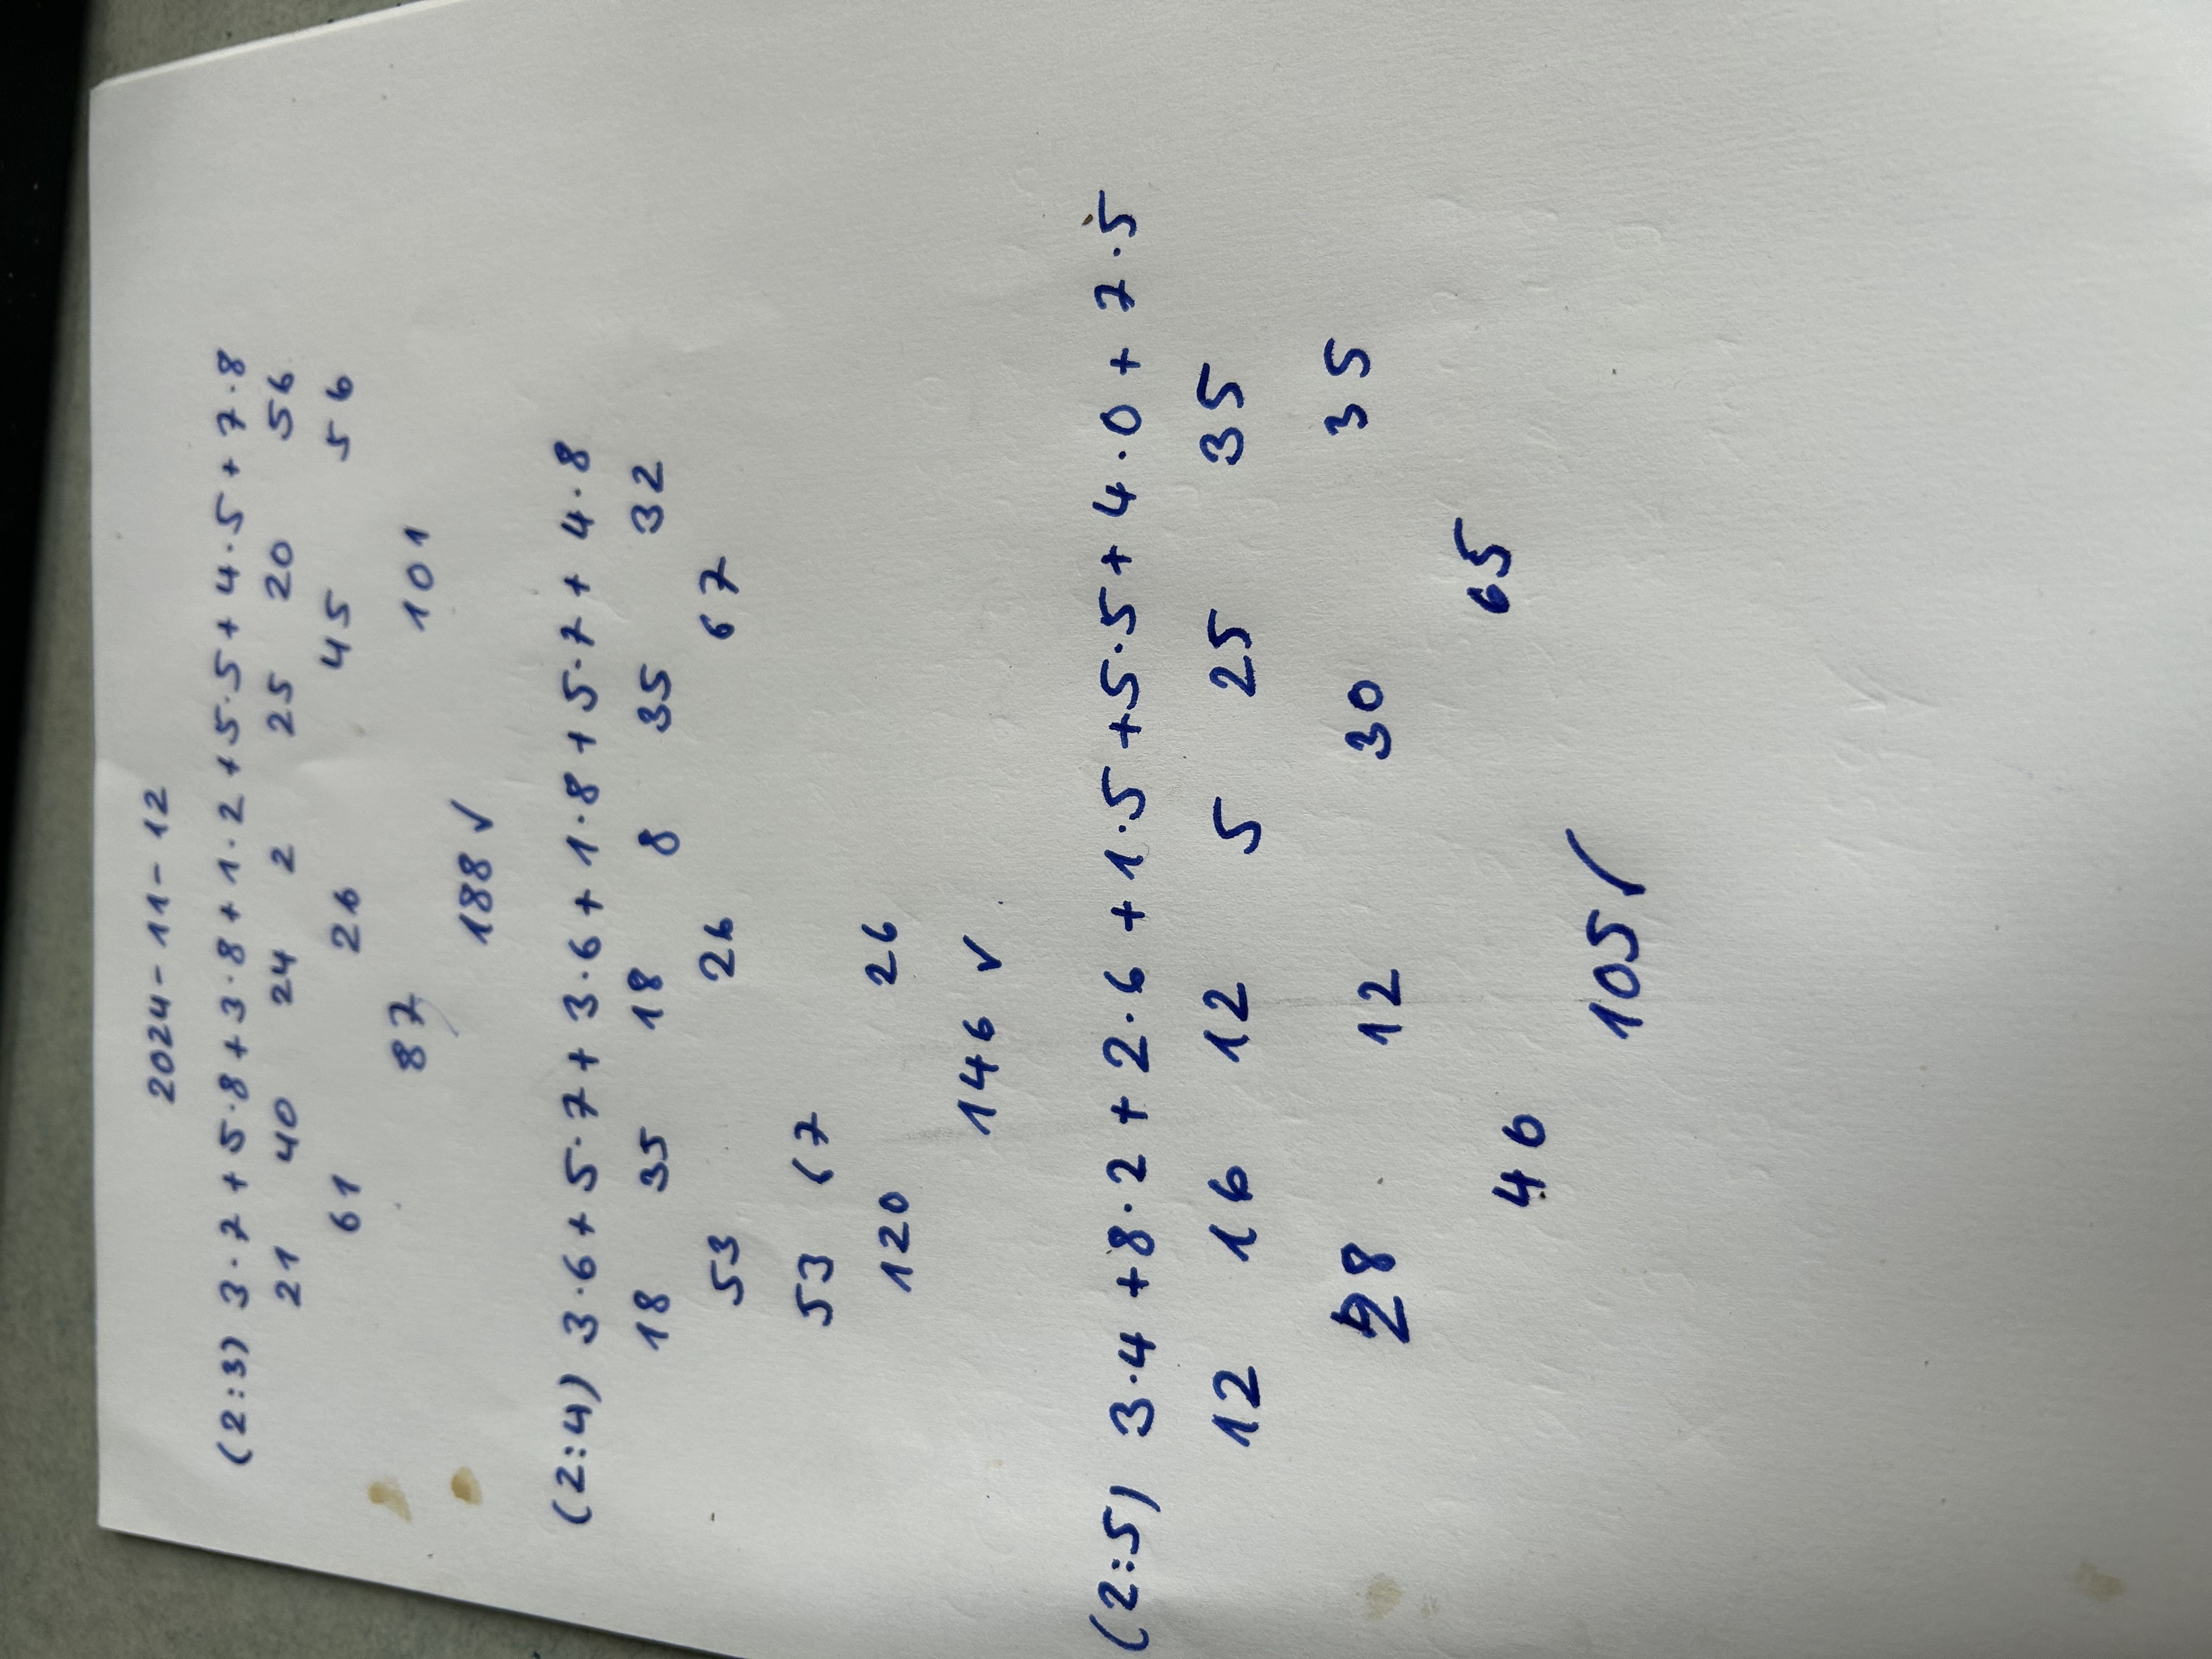 2024-11-12
(2:3) 3·7+5·8+3·8+1·2+5·5+4·5+7·8
21 40 24 2 25 20 56
61 26 45 56
87 101
188 ✓
(2:4) 3·6+5·7+3·6+1·8+5·7+4·8
18 35 18 8 35 32
53 26 67
53 67
120 26
146 ✓
(2:5) 3·4+8·2+2·6+1·5+5·5+4·0+7·5
12 16 12 5 25 35
28 12 30 35
40 65
105 ✓